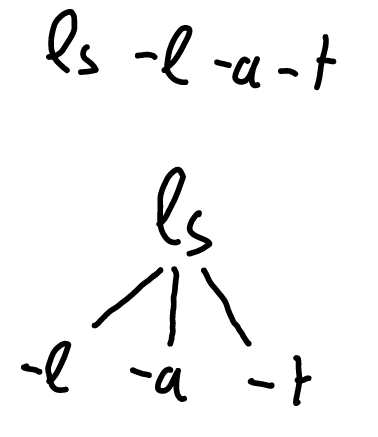 ls -l -a -t
ls
-l -a -t